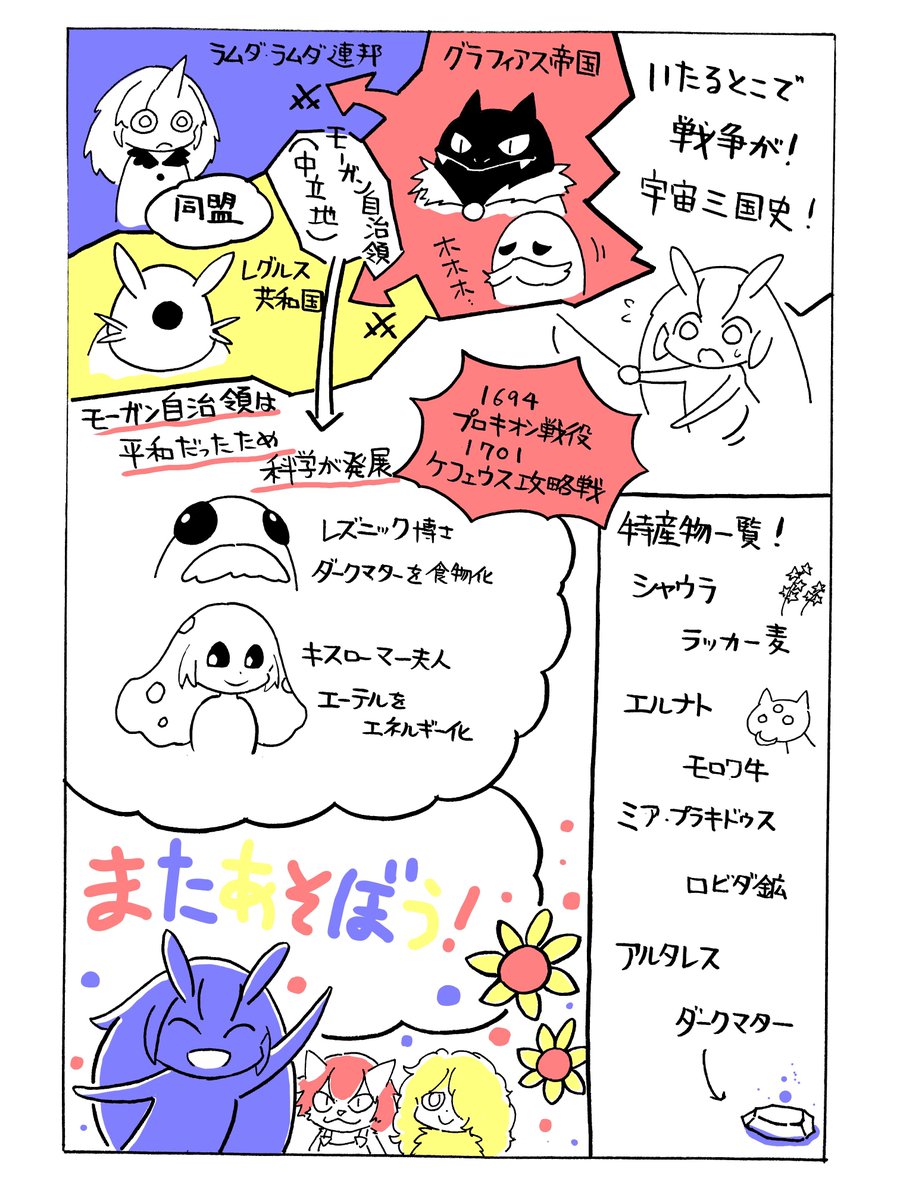 いたるとこで
戦争が!
宇宙三国史!
グラフィアス帝国
ホホホ…
ラムダ・ラムダ連邦
モーガン自治領
(中立地)
同盟
レグルス
共和国
モーガン自治領は
平和だったため
科学が発展
1694
プロキオン戦役
1701
ケフェウス攻略戦
レズニック博士
ダークマターを食物化
キスローマー夫人
エーテルを
エネルギー化
特産物一覧!
シャウラ
ラッカー麦
エルナト
モロワ牛
ミア・プラキドゥス
ロビダ鉱
アルタレス
ダークマター
またあそぼう!